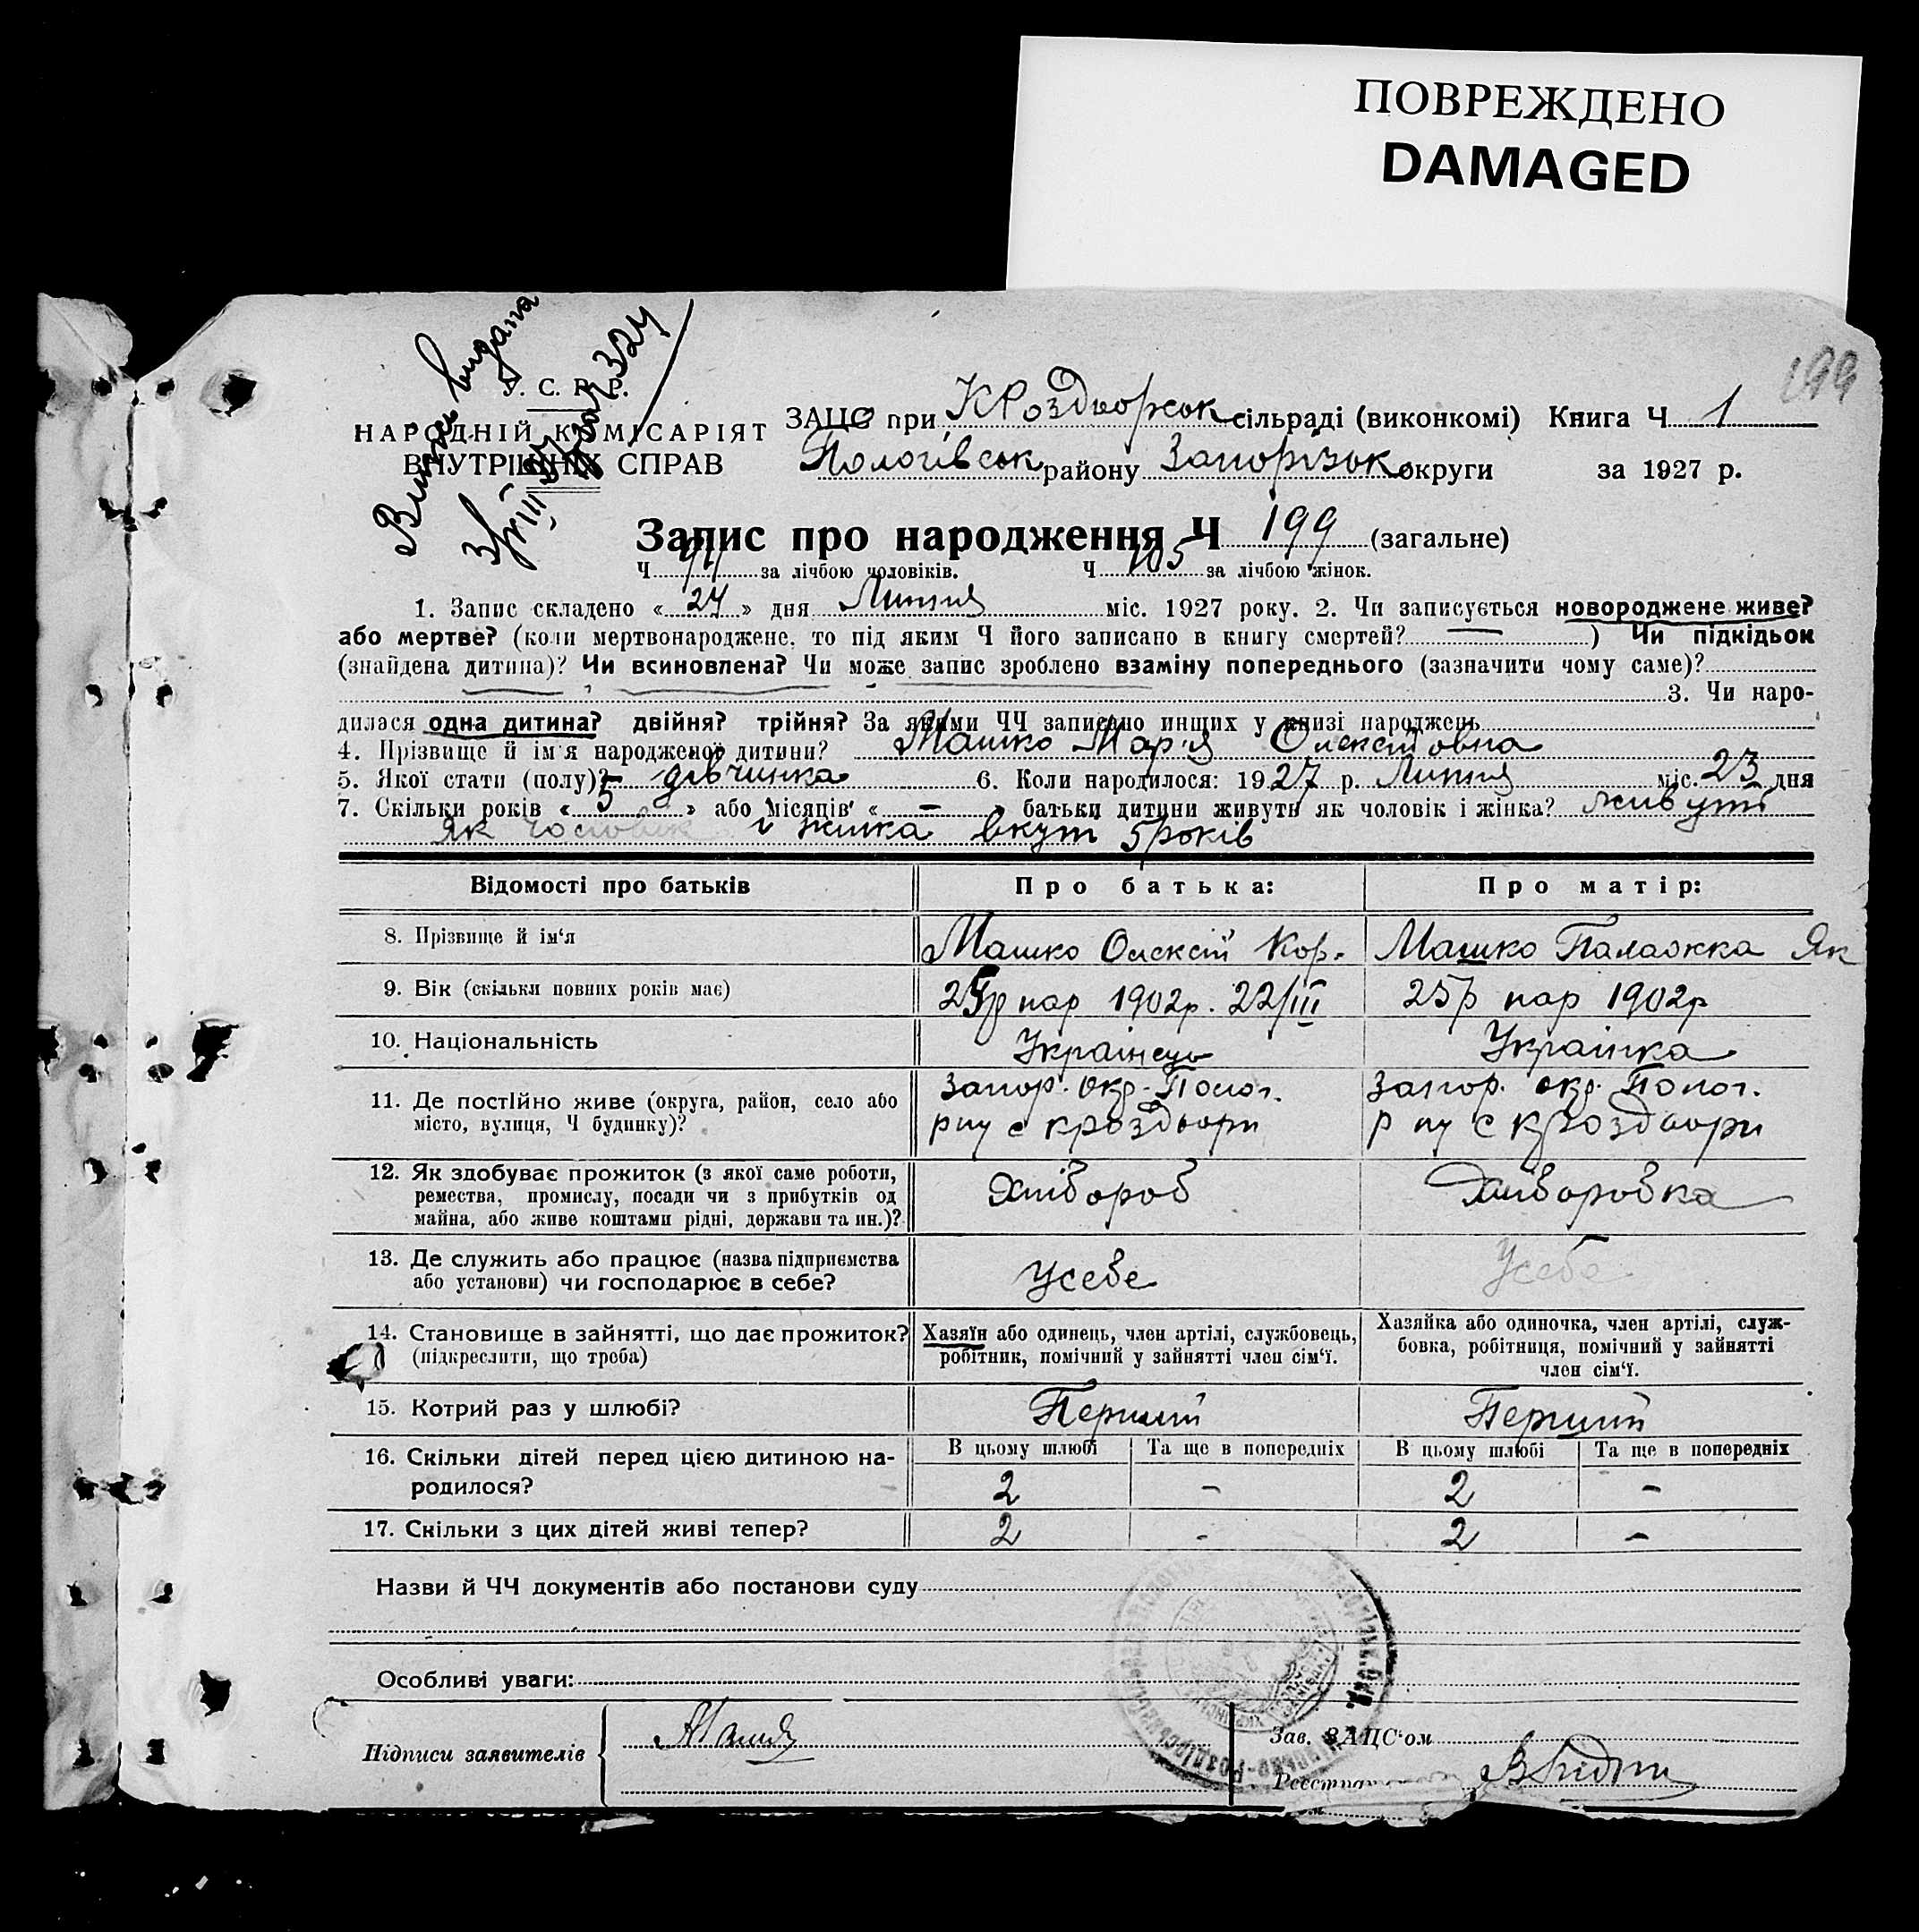 ПОВРЕЖДЕНО
DAMAGED
199
Виписка видана
324
У. С. Р. Р.
НАРОДНІЙ КОМІСАРІЯТ
ВНУТРІШНІХ СПРАВ
ЗАЦС при КРоздворсок сільраді (виконкомі) Книга Ч 1
Пологівськ району Запорізьк округи за 1927 р.
Запис про народження Ч 199 (загальне)
Ч 94 за лічбою чоловіків. Ч 105 за лічбою жінок.
1. Запис складено « 24 » дня Липня міс. 1927 року. 2. Чи записується новороджене живе?
або мертве? (коли мертвонароджене, то під яким Ч його записано в книгу смертей? — ) Чи підкідьок
(знайдена дитина)? Чи всиновлена? Чи може запис зроблено взаміну попереднього (зазначити чому саме)?
3. Чи наро-
дилася одна дитина? двійня? трійня? За якими ЧЧ записано инших у книзі народжень
4. Прізвище й ім'я народженої дитини? Машко Мар'я Олексіївна
5. Якої стати (полу)? дівчинка 6. Коли народилося: 1927 р. Липня міс. 23 дня
7. Скільки років « 5 » або місяців « – » батьки дитини живуть як чоловік і жінка? живуть
як чоловік і жинка вкупі 5 років
Відомості про батьків Про батька: Про матір:
8. Прізвище й ім'я Машко Олексій Кор. Машко Палажка Як
9. Вік (скільки повних років має) 25р нар 1902р. 22/III 25р нар 1902р
10. Національність Українець Українка
11. Де постійно живе (округа, район, село або Запор. окр. Полог. Запор. окр. Полог.
місто, вулиця, Ч будинку)? р ну с кроздори р ну с кроздори
12. Як здобуває прожиток (з якої саме роботи, Хлібороб Хліборобка
ремества, промислу, посади чи з прибутків од
майна, або живе коштами рідні, держави та ин.)?
13. Де служить або працює (назва підприємства Усебе Усебе
або установи) чи господарює в себе?
14. Становище в зайнятті, що дає прожиток? Хазяїн або одинець, член артілі, службовець, Хазяйка або одиночка, член артілі, служ-
(підкреслити, що треба) робітник, помічний у зайнятті член сім'ї. бовка, робітниця, помічний у зайнятті
член сім'ї.
15. Котрий раз у шлюбі? Перший Перший
16. Скільки дітей перед цією дитиною на- В цьому шлюбі Та ще в попередніх В цьому шлюбі Та ще в попередніх
родилося? 2 – 2 –
17. Скільки з цих дітей живі тепер? 2 - 2 –
Назви й ЧЧ документів або постанови суду
Особливі уваги:
Підписи заявителів Зав. ЗАЦС'ом